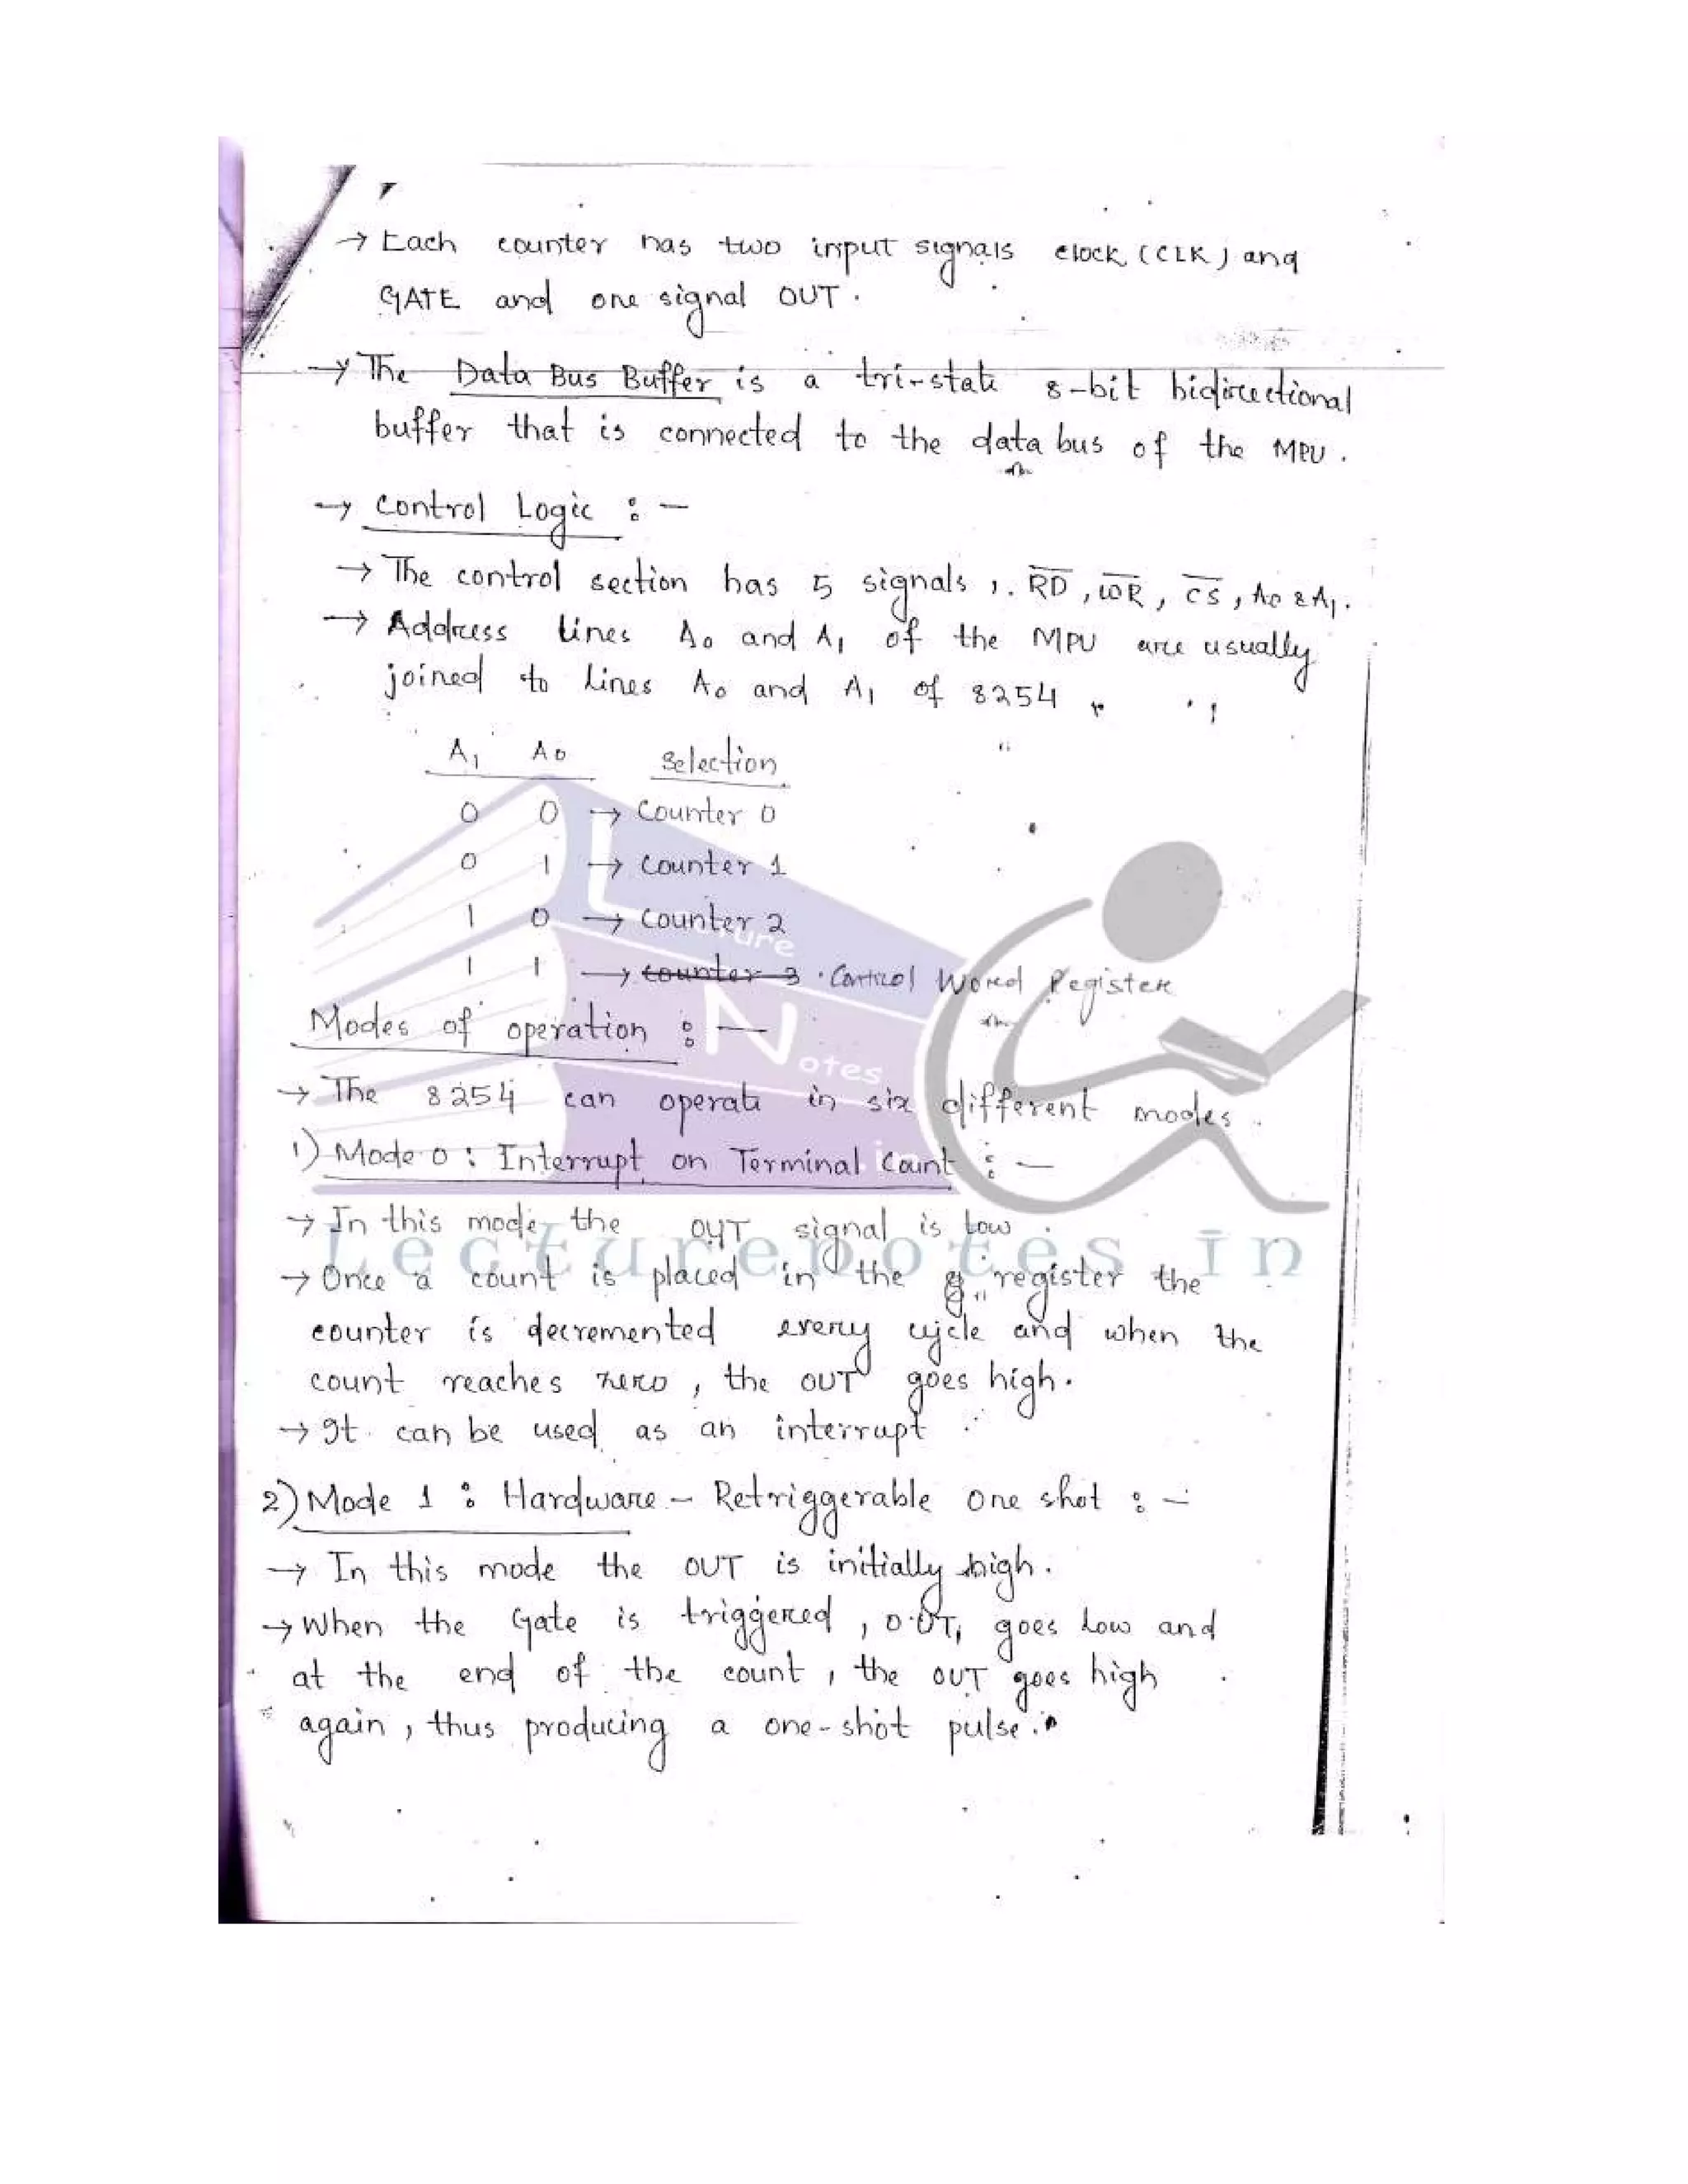 → Each counter has two input signals clock (CLK) and
GATE and one signal OUT.
→ The Data Bus Buffer is a tri-state 8-bit bidirectional
buffer that is connected to the data bus of the MPU.
→ Control Logic : –
→ The control section has 5 signals, R̅D̅, W̅R̅, C̅S̅, A₀ & A₁.
→ Address lines A₀ and A₁ of the MPU are usually
joined to lines A₀ and A₁ of 8254
A₁ A₀ Selection
0 0 → Counter 0
0 1 → Counter 1
1 0 → Counter 2
1 1 → counter 3 . Control Word Register
Modes of operation : –
→ The 8254 can operate in six different modes.
1) Mode 0 : Interrupt on Terminal Count : –
→ In this mode the OUT signal is low.
→ Once a count is placed in the register the
counter is decremented every cycle and when the
count reaches zero, the OUT goes high.
→ It can be used as an interrupt.
2) Mode 1 : Hardware - Retriggerable One shot : –
→ In this mode the OUT is initially high.
→ When the Gate is triggered, OUT, goes low and
at the end of the count, the OUT goes high
again, thus producing a one-shot pulse.
Lecture
Notes
.in
Lecturenotes.in